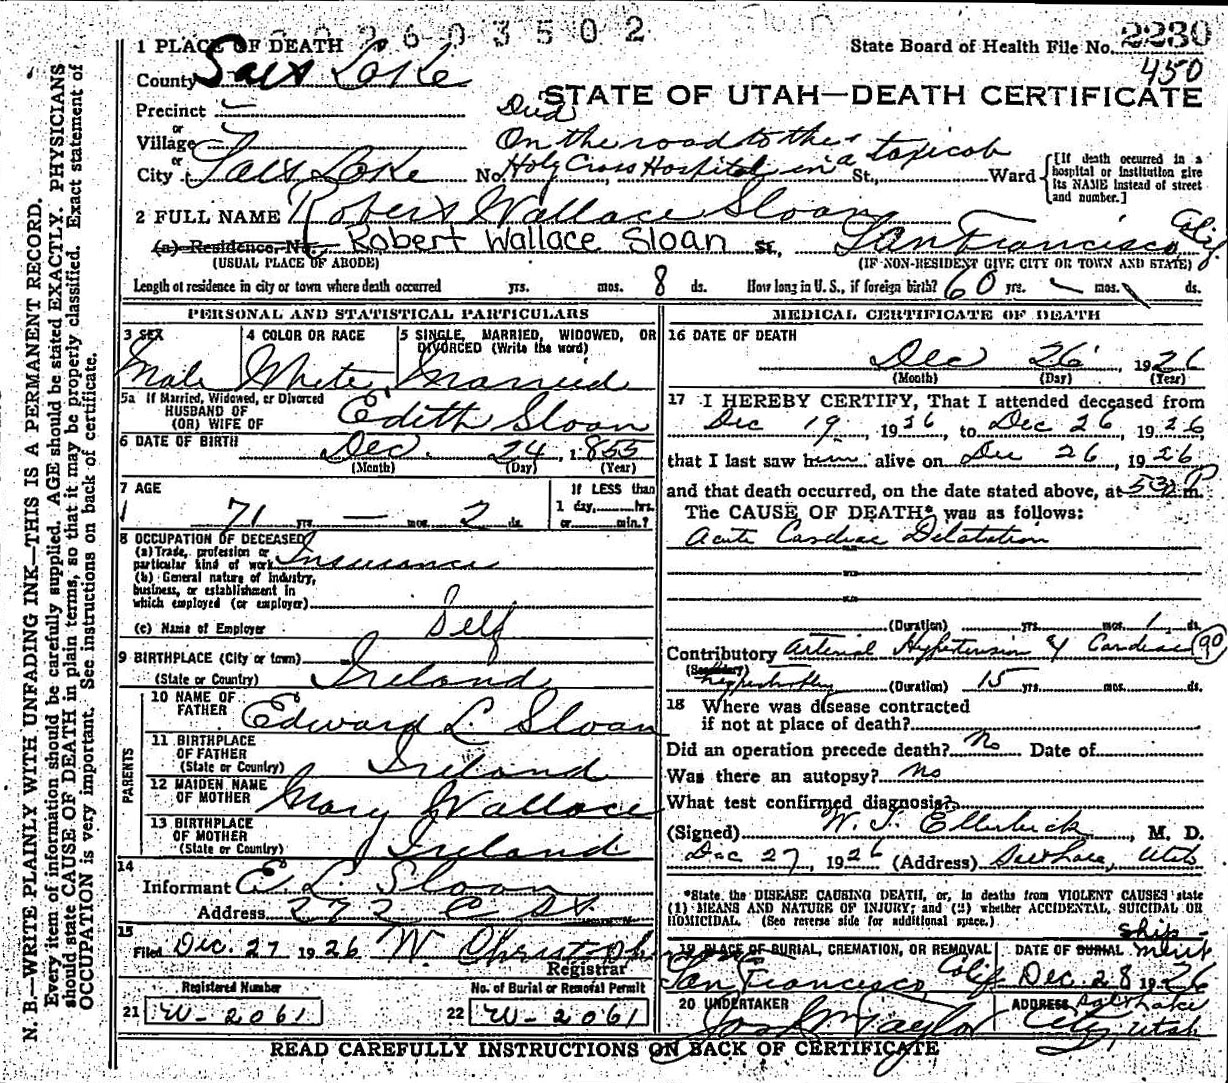 0 2 6 0 3 5 0 2
State Board of Health File No. 2230
450
1 PLACE OF DEATH
County Salt Lake
STATE OF UTAH—DEATH CERTIFICATE
Precinct
or
Village
or
City Salt Lake
Died
On the road to the
No. Holy Cross Hospital in a taxicab St., Ward
[If death occurred in a hospital or institution give its NAME instead of street and number.]
2 FULL NAME Robert Wallace Sloan
(a) Residence. No. Robert Wallace Sloan St., San Francisco Calif
(USUAL PLACE OF ABODE) (IF NON-RESIDENT GIVE CITY OR TOWN AND STATE)
Length of residence in city or town where death occurred yrs. mos. 8 ds. How long in U.S., if foreign birth? 60 yrs. mos. ds.
PERSONAL AND STATISTICAL PARTICULARS
3 SEX
Male
4 COLOR OR RACE
White
5 SINGLE, MARRIED, WIDOWED, OR DIVORCED (Write the word)
Married
5a If Married, Widowed, or Divorced
HUSBAND OF
(OR) WIFE OF Edith Sloan
6 DATE OF BIRTH Dec. 24, 1855
(Month) (Day) (Year)
7 AGE
71 yrs. — mos. 2 ds.
If LESS than
1 day, hrs.
or min.?
8 OCCUPATION OF DECEASED
(a) Trade, profession or
particular kind of work Insurance
(b) General nature of Industry,
business, or establishment in
which employed (or employer)
(c) Name of Employer Self
9 BIRTHPLACE (City or town)
(State or Country) Ireland
PARENTS
10 NAME OF
FATHER Edward L. Sloan
11 BIRTHPLACE
OF FATHER
(State or Country) Ireland
12 MAIDEN NAME
OF MOTHER Mary Wallace
13 BIRTHPLACE
OF MOTHER
(State or Country) Ireland
14
Informant E. L. Sloan
Address 272 C St
15
Filed Dec. 27 1926 W. Christopherson
Registrar
Registered Number
21 W-2061
No. of Burial or Removal Permit
22 W-2061
MEDICAL CERTIFICATE OF DEATH
16 DATE OF DEATH
Dec 26 1926
(Month) (Day) (Year)
17 I HEREBY CERTIFY, That I attended deceased from
Dec 19 1926, to Dec 26, 1926,
that I last saw him alive on Dec 26, 1926
and that death occurred, on the date stated above, at 530 P m.
The CAUSE OF DEATH* was as follows:
Acute Cardiac Dilatation
(Duration) yrs. mos. 1 ds.
Contributory Arterial Hypertension & Cardiac 90
(Secondary) hypertrophy (Duration) 15 yrs. mos. ds.
18 Where was disease contracted
if not at place of death?
Did an operation precede death? No Date of
Was there an autopsy? No
What test confirmed diagnosis?
(Signed) W. T. Ellerbeck, M. D.
Dec 27, 1926 (Address) Salt Lake, Utah
*State the DISEASE CAUSING DEATH, or, in deaths from VIOLENT CAUSES state
(1) MEANS AND NATURE OF INJURY; and (2) whether ACCIDENTAL, SUICIDAL OR
HOMICIDAL. (See reverse side for additional space.)
19 PLACE OF BURIAL, CREMATION, OR REMOVAL
San Francisco, Calif
DATE OF BURIAL shipment
Dec. 28 1926
20 UNDERTAKER
Jos. Wm Taylor
ADDRESS Salt Lake
City, Utah
READ CAREFULLY INSTRUCTIONS ON BACK OF CERTIFICATE
N. B.—WRITE PLAINLY WITH UNFADING INK—THIS IS A PERMANENT RECORD.
Every item of information should be carefully supplied. AGE should be stated EXACTLY. PHYSICIANS
should state CAUSE OF DEATH in plain terms, so that it may be properly classified. Exact statement of
OCCUPATION is very important. See instructions on back of certificate.